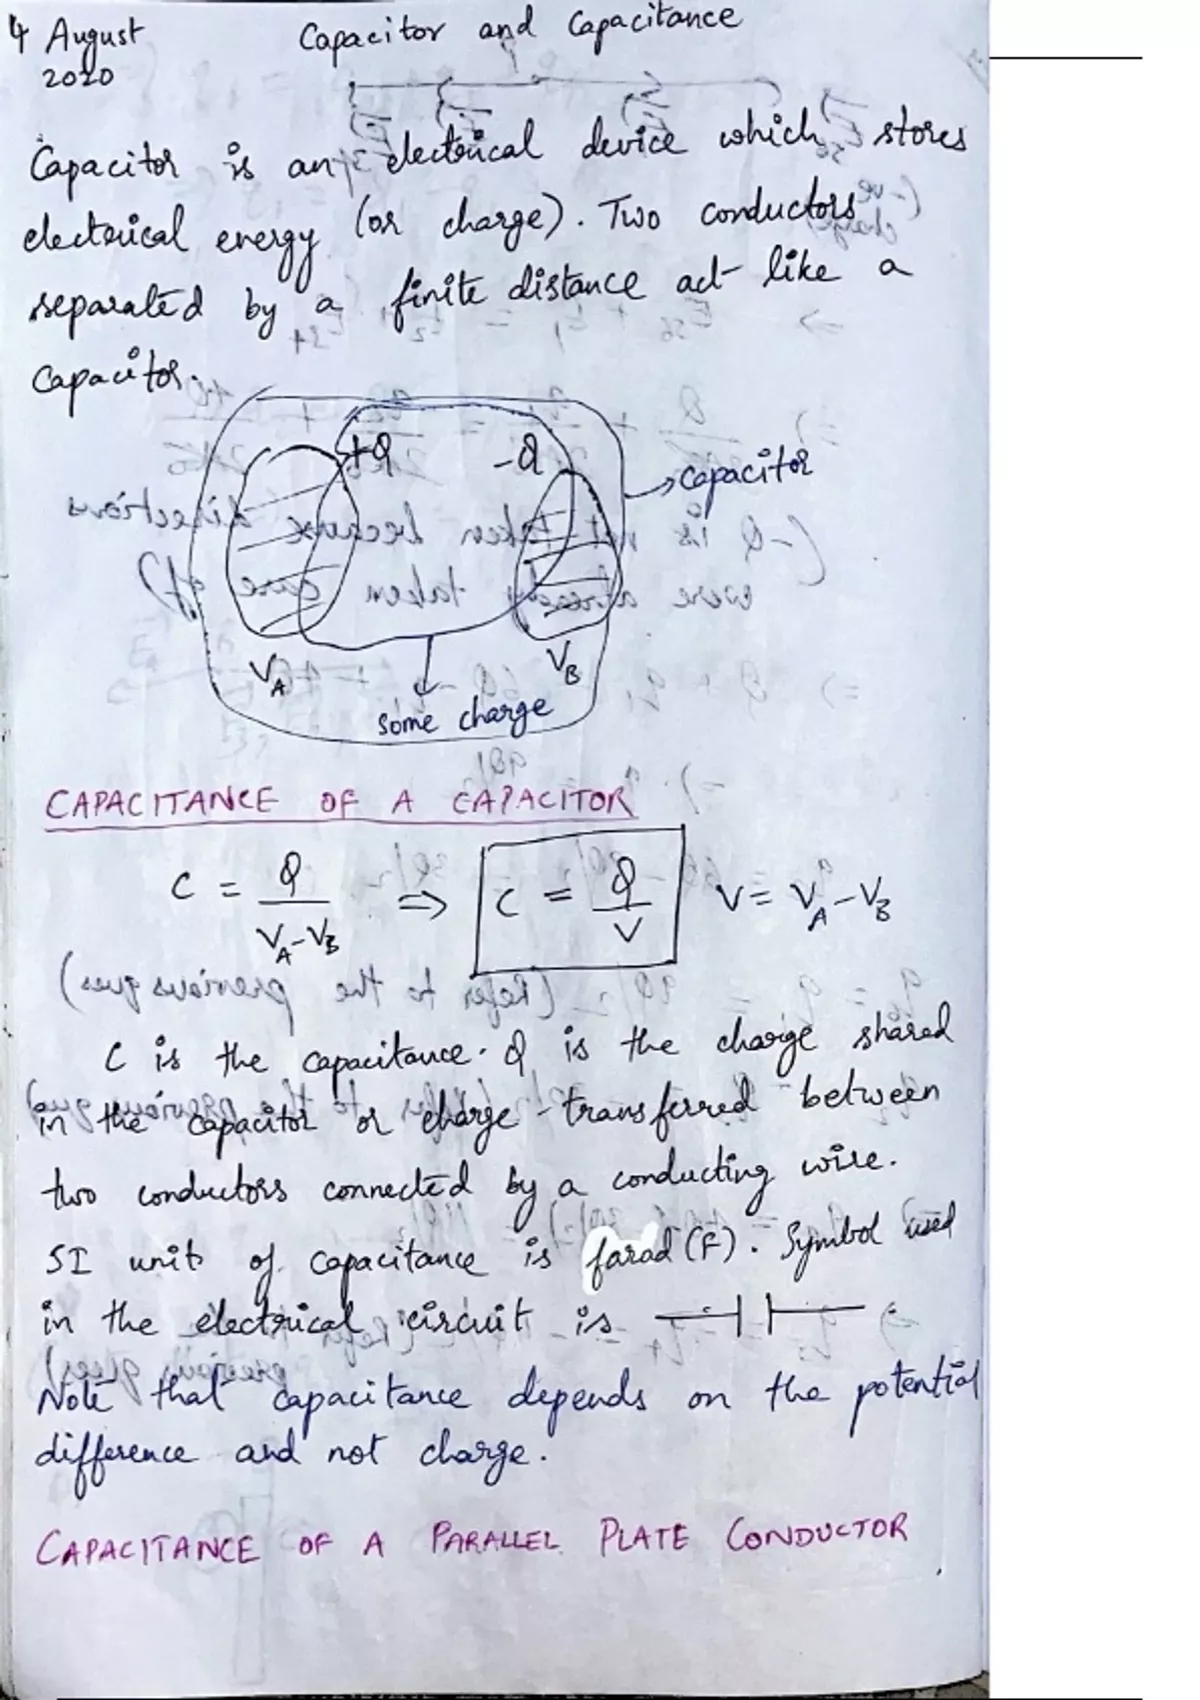 4 August
2020
Capacitor and Capacitance
Capacitor is an electrical device which stores
electrical energy (or charge). Two conductors
separated by a finite distance act like a
capacitor.
+Q
-Q
capacitor
VA
VB
some charge
CAPACITANCE OF A CAPACITOR
C = Q / (VA-VB) => C = Q / V V = VA-VB
C is the capacitance. Q is the charge shared
in the capacitor or charge transferred between
two conductors connected by a conducting wire.
SI unit of capacitance is farad (F). Symbol used
in the electrical circuit is
Note that capacitance depends on the potential
difference and not charge.
CAPACITANCE OF A PARALLEL PLATE CONDUCTOR